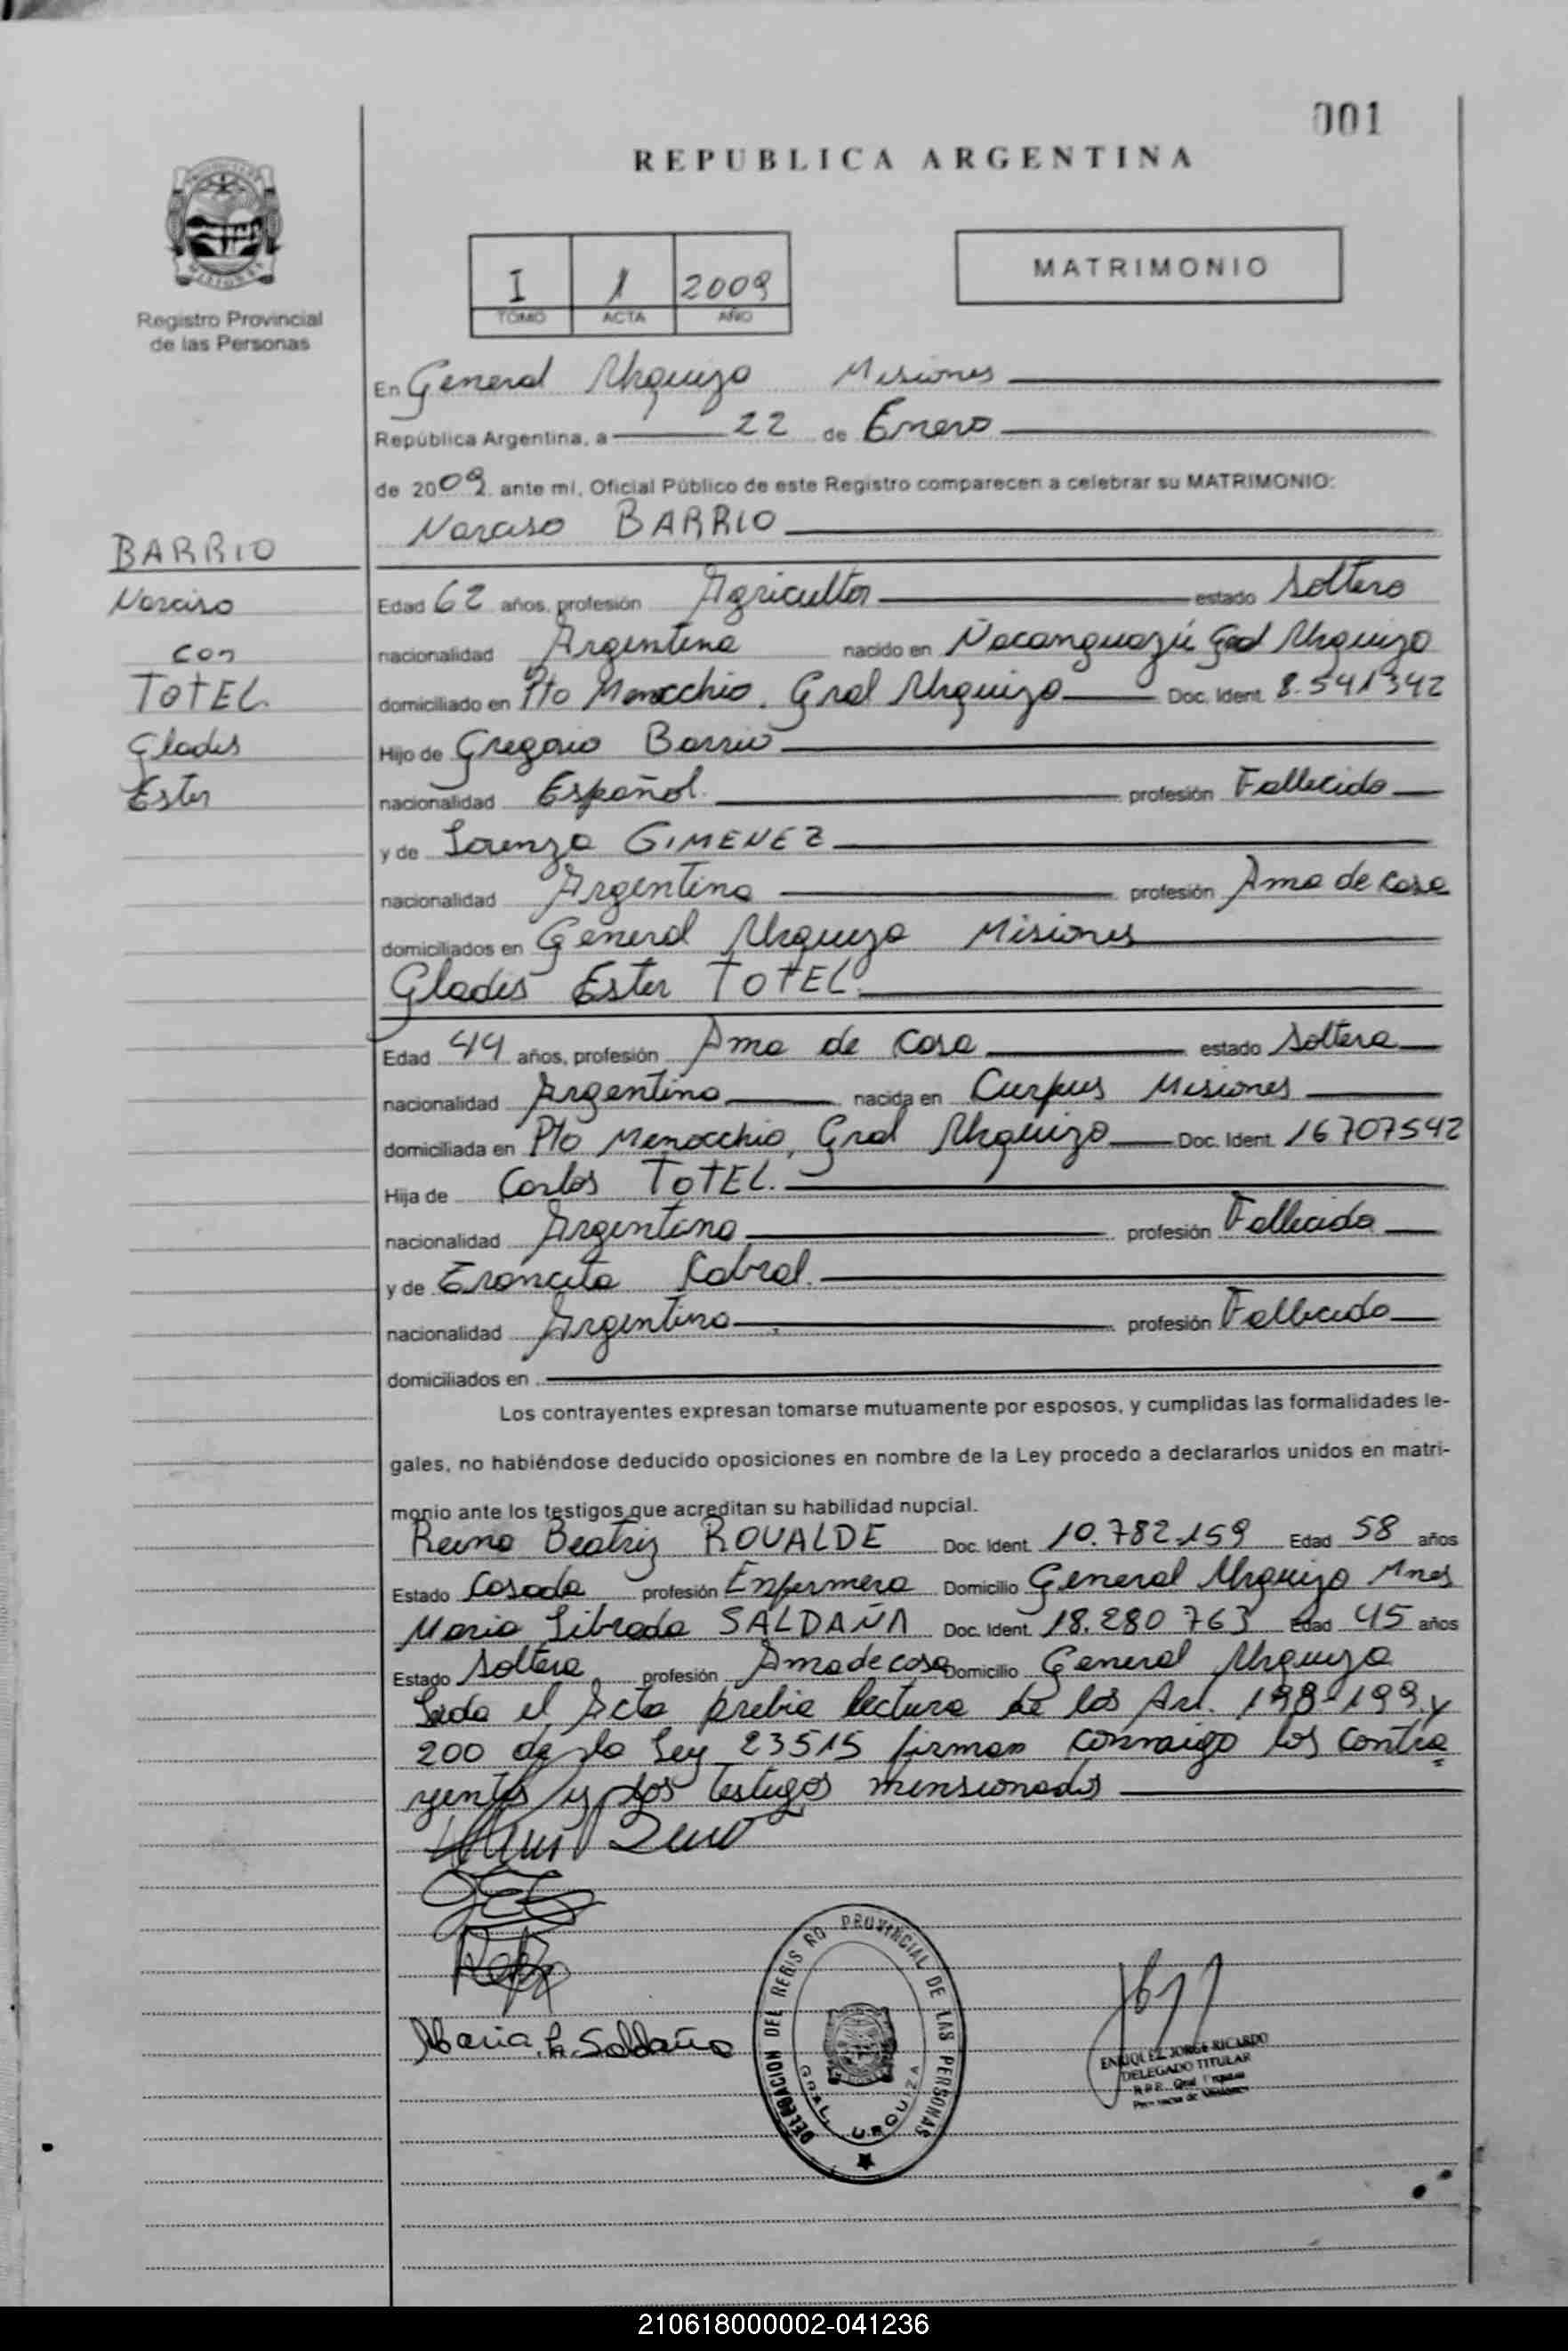 001
REPUBLICA ARGENTINA
MATRIMONIO
I 1 2009
TOMO ACTA AÑO
MISIONES
Registro Provincial
de las Personas
BARRIO
Narciso
con
TOTEL.
Gladis
Ester
En General Urquiza Misiones
República Argentina, a 22 de Enero
de 2009. ante mí, Oficial Público de este Registro comparecen a celebrar su MATRIMONIO:
Narciso BARRIO
Edad 62 años, profesión Agricultor estado Soltero
nacionalidad Argentina nacido en Ñacanguazú Gral Urquiza
domiciliado en Pto Menocchio, Gral Urquiza Doc. Ident. 8.541342
Hijo de Gregorio Barrio
nacionalidad Español. profesión Fallecido
y de Lorenza GIMENEZ
nacionalidad Argentina profesión Ama de casa
domiciliados en General Urquiza Misiones
Gladis Ester TOTEL.
Edad 44 años, profesión Ama de Casa estado Soltera
nacionalidad Argentina nacida en Corpus Misiones
domiciliada en Pto Menocchio, Gral Urquiza Doc. Ident. 16707542
Hija de Carlos TOTEL.
nacionalidad Argentino profesión Fallecido
y de Cabral.
nacionalidad Argentina profesión Fallecida
domiciliados en
Los contrayentes expresan tomarse mutuamente por esposos, y cumplidas las formalidades le-
gales, no habiéndose deducido oposiciones en nombre de la Ley procedo a declararlos unidos en matri-
monio ante los testigos que acreditan su habilidad nupcial.
Reina Beatriz ROVALDE Doc. Ident. 10.782.159 Edad 58 años
Estado Casada profesión Enfermera Domicilio General Urquiza Mnes
Maria Librada SALDAÑA Doc. Ident. 18.280 763 Edad 45 años
Estado Soltera profesión Ama de casa Domicilio General Urquiza
Leida el Acta prebia lectura de los Art. 198-199 y
200 de la Ley 23515 firman conmigo los contra
yentes y los testigos mensionados
Maria L. Saldaña
DELEGACION DEL REGISTRO PROVINCIAL DE LAS PERSONAS
GRAL. URQUIZA
ENRIQUEZ JORGE RICARDO
DELEGADO TITULAR
R.P.P. Gral Urquiza
Provincia de Misiones
210618000002-041236